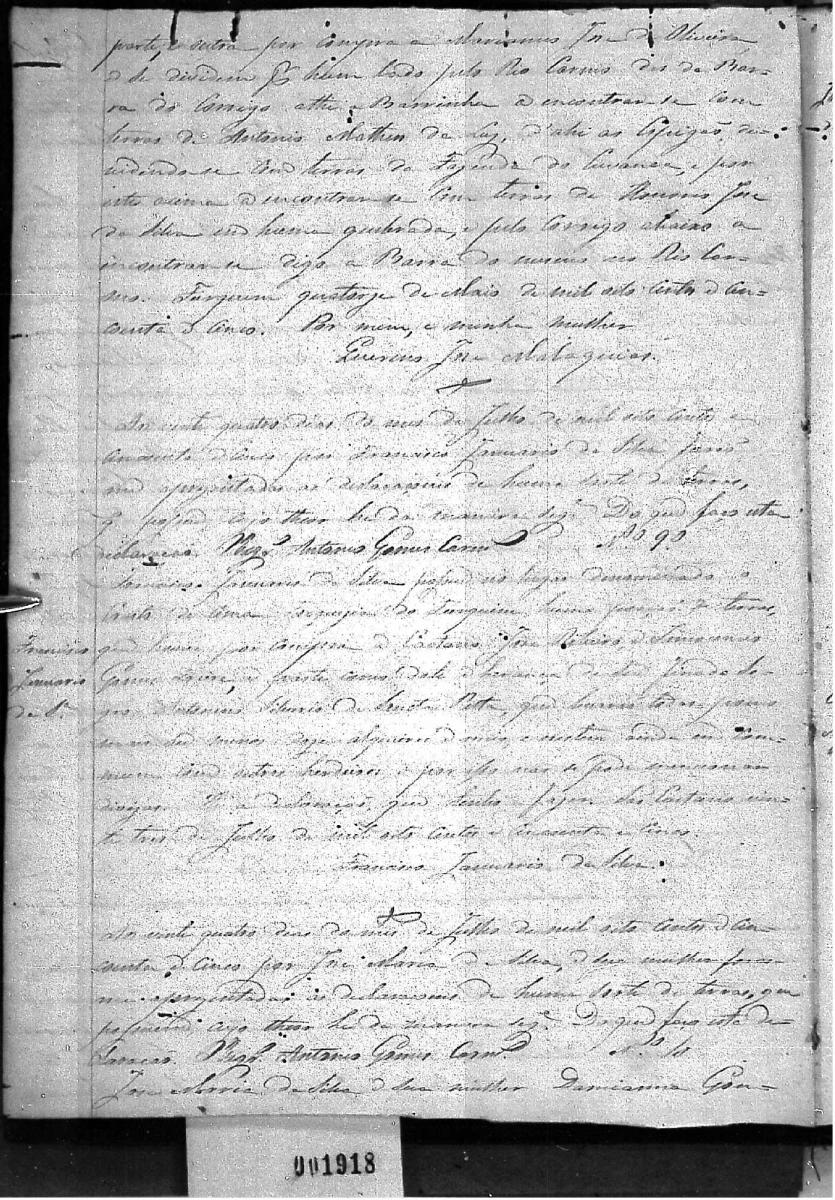 parte, e outra por compra a Marianno José de Oliveira
e se dividem por hum lado pelo Rio Carmo des da Bar-
ra do Corrego athe a Barrinha a encontrar-se com
terras de Antonio Matheu da Luz, d'ahi ao Espigão, di-
vidindo-se com terras da Fazenda do e por
este acima a encontrar-se com terras de José
da Silva em huma quebrada, e pelo Corrego abaixo a
incontrar-se digo a Barra do mesmo no Rio Car-
mo. Furquim quatorze de Maio de mil oito centos e cin-
coenta e cinco. Por mim, e minha mulher
José Malaquias.
Aos vinte quatro dias do mes de Julho de mil oito centos e
cincoenta e cinco por Francisco Januario da Silva forão
me aprezentadas as declaraçoens de huma sorte de terras,
q possue cujo theor he da maneira seg.e Do que faço esta
declaração. O Vigr.o Antonio Gomes Carn.o N.o 9.
Francisco Januario da Silva possue no lugar denominado o
de Cima Freguezia do Furquim huma porção de terras,
que houve por compra a Caetano José Ribeiro, e
Gomes e parte como dote e herança de seu finado So-
gro Antonio de Santa Ritta, que levarão todas pouco
mais ou menos doze alqueires de milho, e estão ainda em com-
mum com outros herdeiros e por isso não se pode mencionar
divizas. É a declaração, que tenho a fazer. São Caetano vin-
te tres de Julho de mil oito centos e cincoenta e cinco.
Francisco Januario da Silva.
Francisco
Januario
da S.a
Aos vinte quatro dias do mes de Julho de mil oito centos e cin-
coenta e cinco por José Maria da Silva, e sua mulher forão
me aprezentadas as declaraçoens de huma sorte de terras, que
possuem cujo theor he da maneira seg.e Do que faço esta de-
claração. O Vigr.o Antonio Gomes Carn.o N.o 10
José Maria da Silva e sua mulher Damianna Gon-
001918